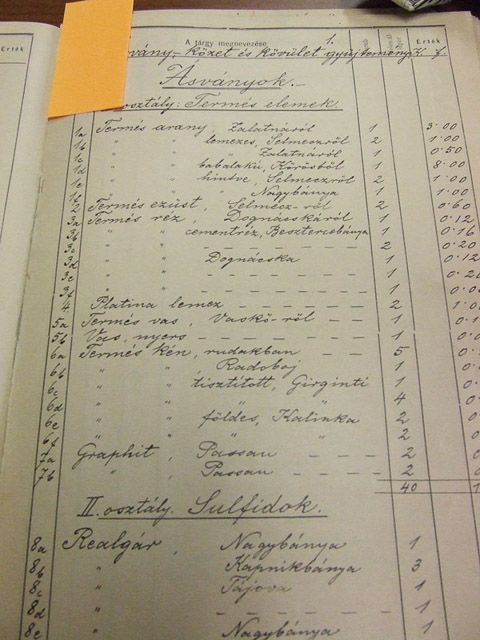 Érték
A tárgy megnevezése
Érték
1.
vány- kőzet és kövület gyűjtemény
Ásványok.
osztály: Termés elemek.
1a Termés arany, Zalatnáról 1 3·00
1b " " lemezes, Selmeczről 2 1·00
1c " " Zalatnáról 1 0·50
1d " " babalakú, Kőrösből 1 8·00
1e " " hintve, Selmeczről 2 1·00
1f " " Nagybánya 1 1·00
2 Termés ezüst, Selmecz-ről 2 0·60
3a Termés réz, Dognácskáról 1 0·12
3b " " cementréz, Besztercebánya 1 0·16
3c " " 2 0·20
3d " " Dognácska 1 0·12
3e " " 1 0·20
3f " " 1 0·
4 Platina lemez 2 1·0
5a Termés vas, Vaskő-ről 1 0·
5b Vas, nyers 1 0·
6a Termés kén, rudakban 5 0·
6b " " Radoboj 1 0·
6c " " tisztított, Girginti 1 0·
6d " " 4 0·
6e " " földes, Kalinka 2 0·
6f " " " " 2 0·
7a Graphit, Passau 2 0·
7b " " Passau 2 0·
40 1
II. osztály. Sulfidok.
8a Realgár, Nagybánya 1
8b " " Kapnikbánya 3
8c " " Tájova 1
8d " " 1
8e " " Nagybánya 1